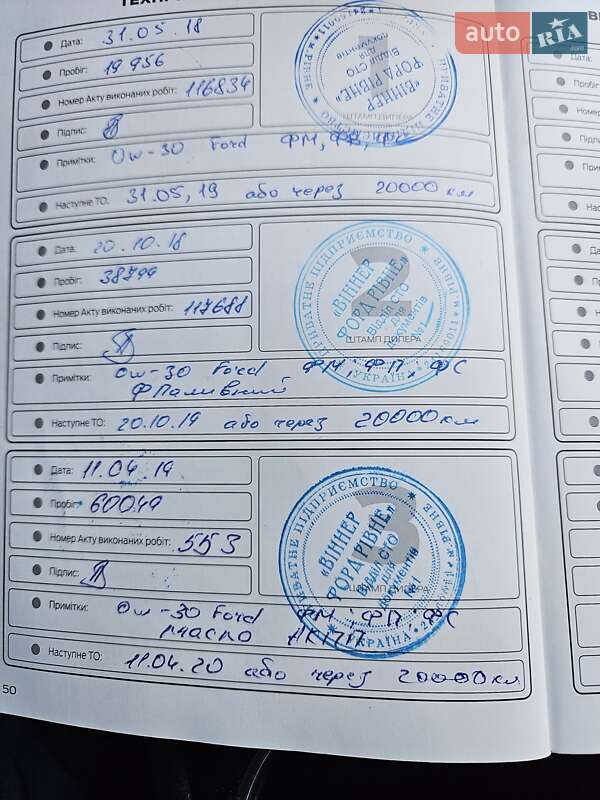 auto RIA .com
Дата: 31.05.18
Пробіг: 19 956
Номер Акту виконаних робіт: 116834
Підпис:
ШТАМП ДИЛЕРА
Примітки: Ow-30 Ford ФМ,
Наступне ТО: 31.05,19 або через 20000 км
Дата: 20.10.18
Пробіг: 38799
Номер Акту виконаних робіт: 117688
Підпис:
2
ПРИВАТНЕ ПІДПРИЄМСТВО
«ВІННЕР ФОРД РІВНЕ»
Відділ СТО
для документів
УКРАЇНА
ШТАМП ДИЛЕРА
Примітки: Ow-30 Ford ФМ, ФП, ФС
ФПаливний
Наступне ТО: 20.10.19 або через 20000 км
Дата: 11.04.19
Пробіг: 60049
Номер Акту виконаних робіт: 553
Підпис:
3
ПРИВАТНЕ ПІДПРИЄМСТВО
«ВІННЕР ФОРД РІВНЕ»
Відділ СТО
для документів
№1
УКРАЇНА
Примітки: Ow-30 Ford ФМ, ФП, ФС
АКПП
Наступне ТО: 11.04.20 або через 20000 км
50
Дата:
Пробіг
Номер
Підпис
Примітки